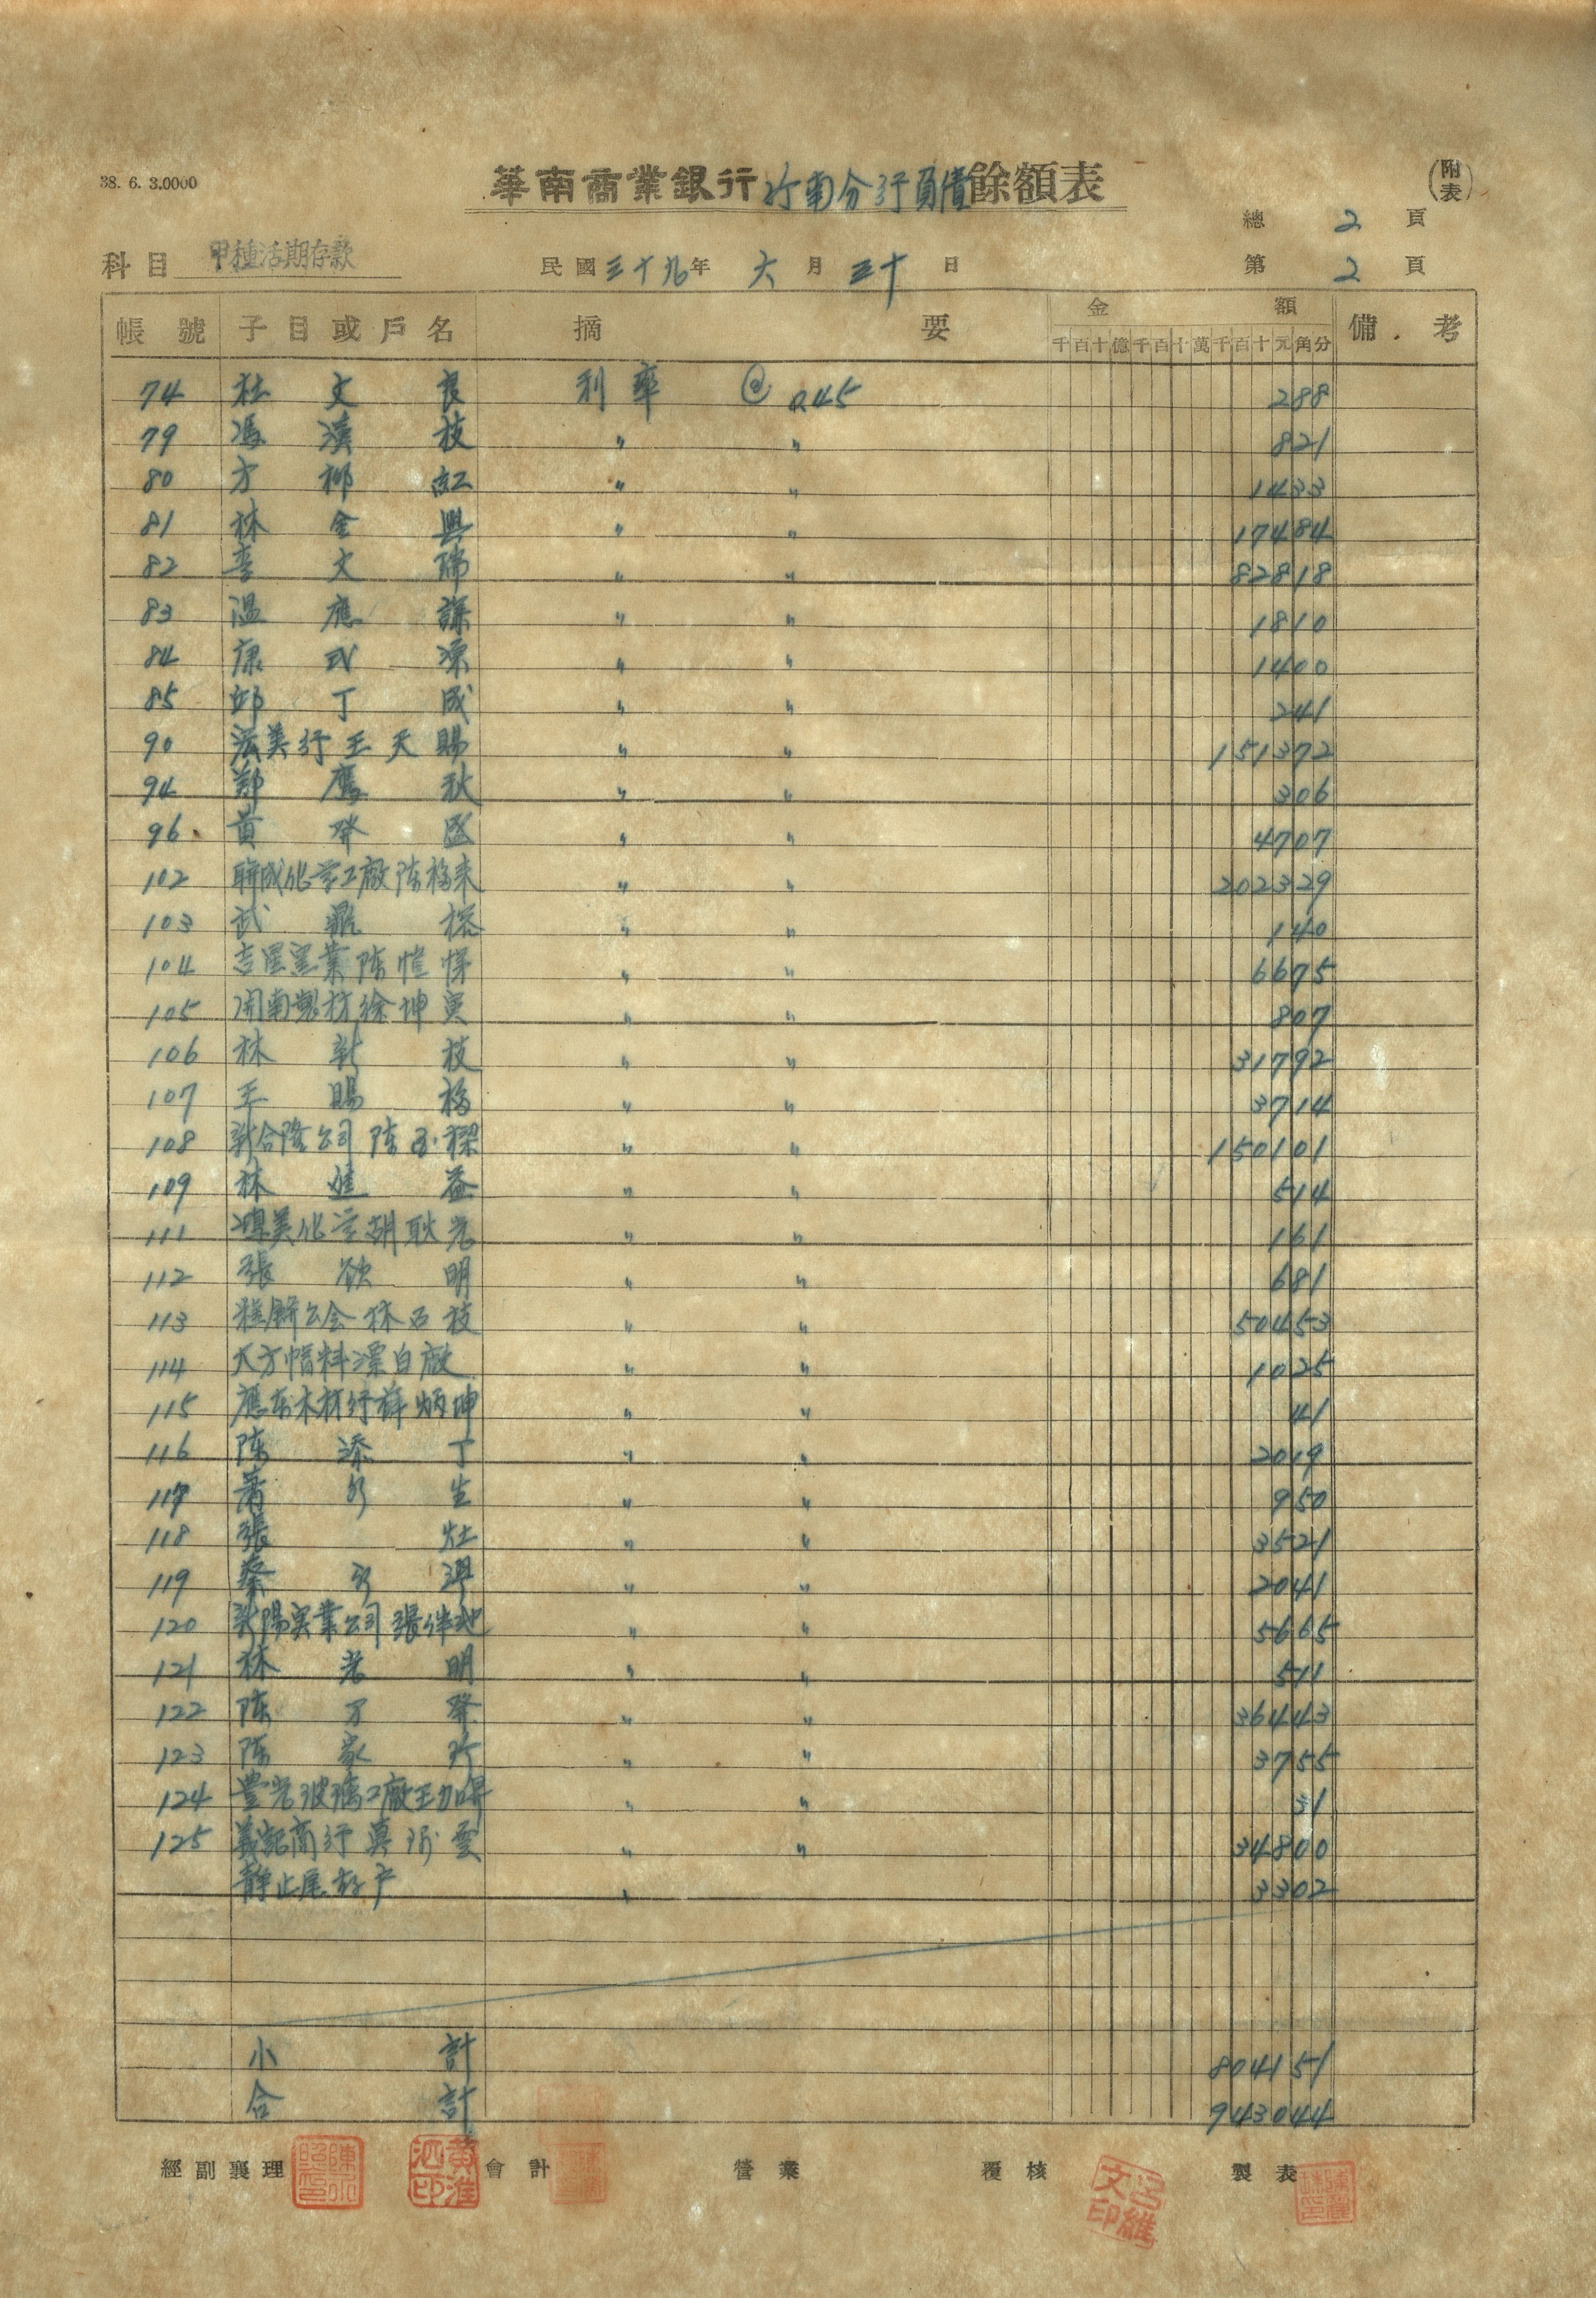 38. 6. 3.0000
華南商業銀行竹南分行負債餘額表
(附表)
總 2 頁
科目 甲種活期存款 民國三十九年 六 月 三十 日 第 2 頁
帳號 子目或戶名 摘要 金額 備考
千百十億千百十萬千百十元角分
74 杜文良 利率 @ 0.45 288
79 馮漢枝 〃 〃 821
80 方柳紅 〃 〃 1433
81 林金興 〃 〃 17484
82 李文瑞 〃 〃 82818
83 溫應謀 〃 〃 1810
84 康武源 〃 〃 1400
85 邱丁成 〃 〃 241
90 法美行王天賜 〃 〃 151372
94 鄭鷹秋 〃 〃 306
96 黃發盛 〃 〃 4707
102 聯成化学工廠陈福来 〃 〃 202329
103 武 〃 〃 140
104 吉星窯業陈 〃 〃 6675
105 開南製材徐坤寅 〃 〃 807
106 林新枝 〃 〃 31792
107 王賜福 〃 〃 3714
108 新合隆公司陈玉樑 〃 〃 150101
109 林進益 〃 〃 514
111 美化学胡耿光 〃 〃 161
112 張欽明 〃 〃 681
113 糕餅公会林石枝 〃 〃 50453
114 大方帽料漂白廠 〃 〃 1025
115 應東木材行薛炳坤 〃 〃 41
116 陈添丁 〃 〃 2019
117 蕭水生 〃 〃 950
118 張灶 〃 〃 3521
119 蔡 〃 〃 2041
120 新陽実業公司張 〃 〃 5665
121 林光明 〃 〃 511
122 陈万發 〃 〃 36443
123 陈家 〃 〃 3755
124 豊光玻璃工廠王 〃 〃 31
125 義記商行 雲 〃 〃 34800
靜止尾存户 〃 3302
小計 804151
合計 943044
經副襄理 會計 營業 覆核 製表
黃淮泗印
呂維文印